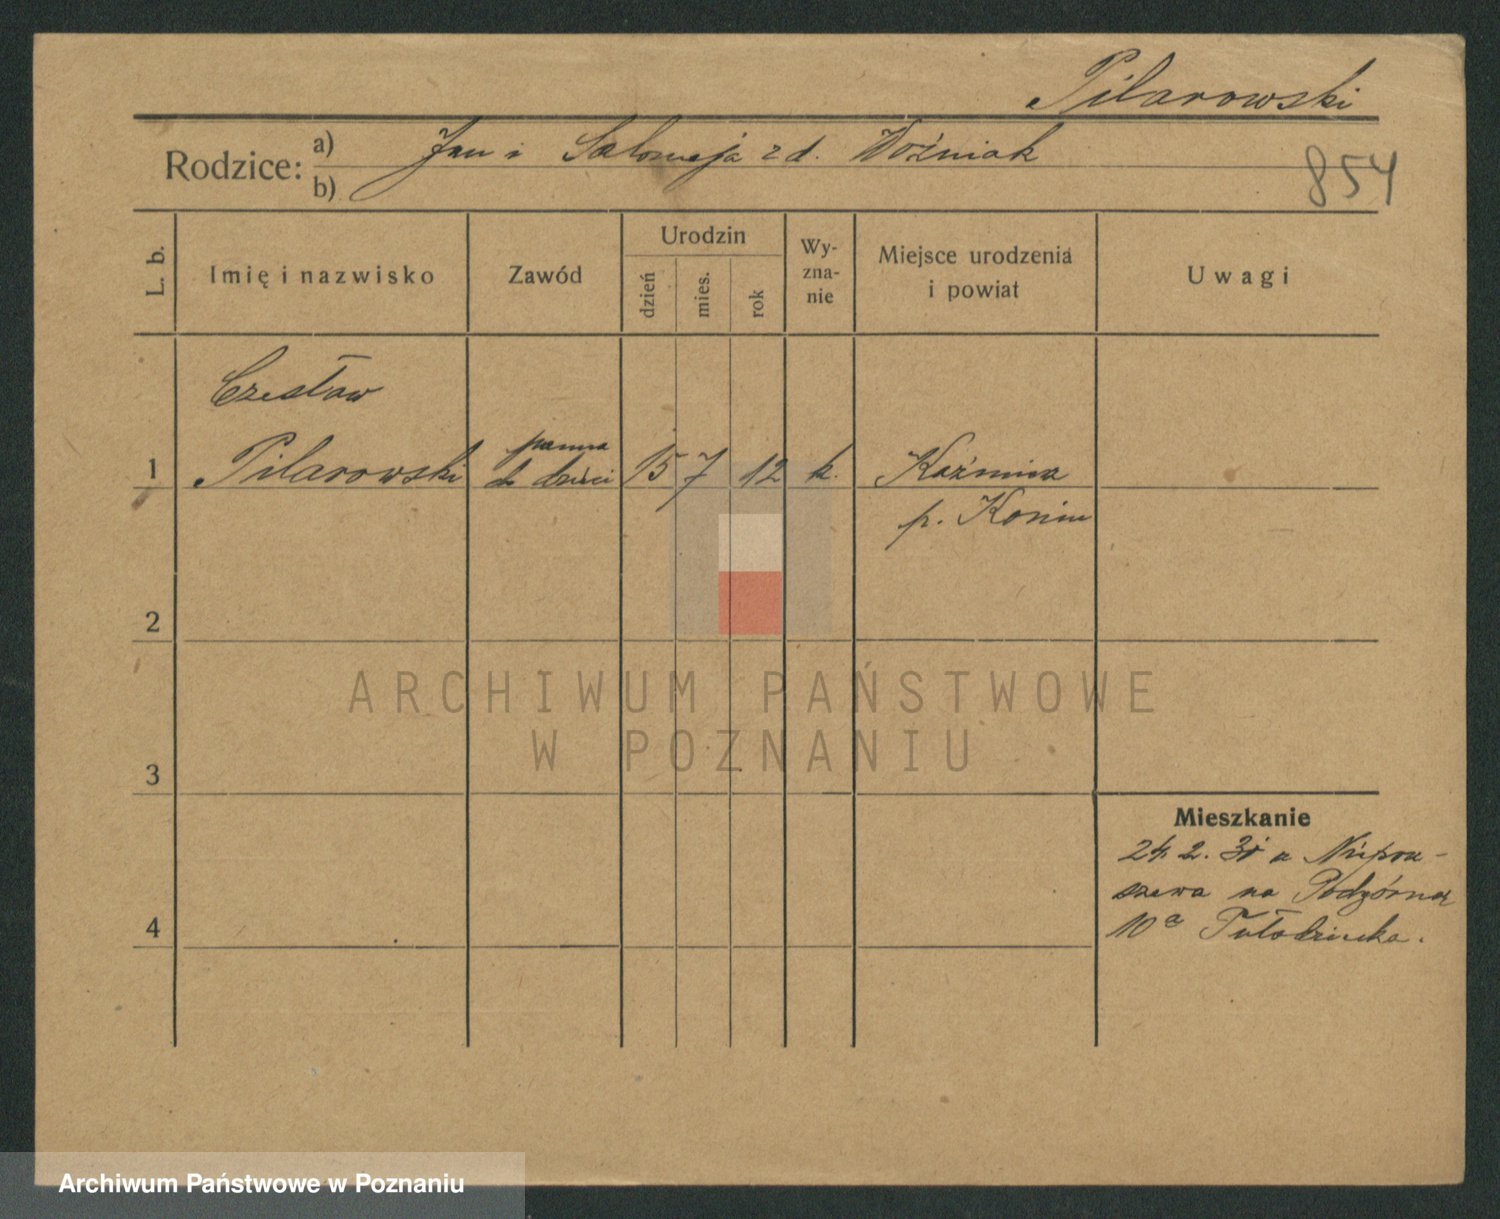 Pilarowski
Rodzice: a) Jan i Salomeja z d. Woźniak
b)
854
L. b.
Imię i nazwisko
Zawód
Urodzin
dzień
mies.
rok
Wy-
zna-
nie
Miejsce urodzenia
i powiat
Uwagi
Czesław
1 Pilarowski panna do dzieci 15 7 12 k. Kaźmierz
p. Konin
2
3
4
Mieszkanie
24.2.31 z
szewa na Podgórna
10a
ARCHIWUM PAŃSTWOWE
W POZNANIU
Archiwum Państwowe w Poznaniu